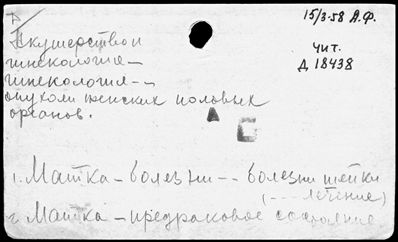 15/3-58 А.Ф.
Акушерство и
гинекология—
гинекология--
опухоли женских половых
органов.
чит.
Д 18438
А
1. Матка – болезни -- болезни шейки
(--- лечение)
2. Матка – предраковое состояние